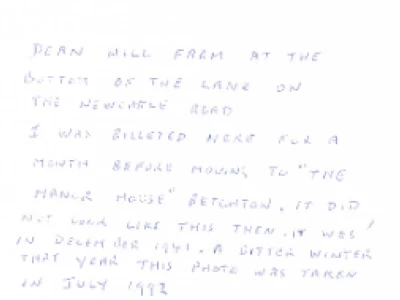 DEAN HILL FARM AT THE
BOTTOM OF THE LANE ON
THE NEWCASTLE ROAD
I WAS BILLETED HERE FOR A
MONTH BEFORE MOVING TO "THE
MANOR HOUSE" BETCHTON. IT DID
NOT LOOK LIKE THIS THEN. IT WAS
IN DECEMBER 1941. A BITTER WINTER
THAT YEAR THIS PHOTO WAS TAKEN
IN JULY 1992